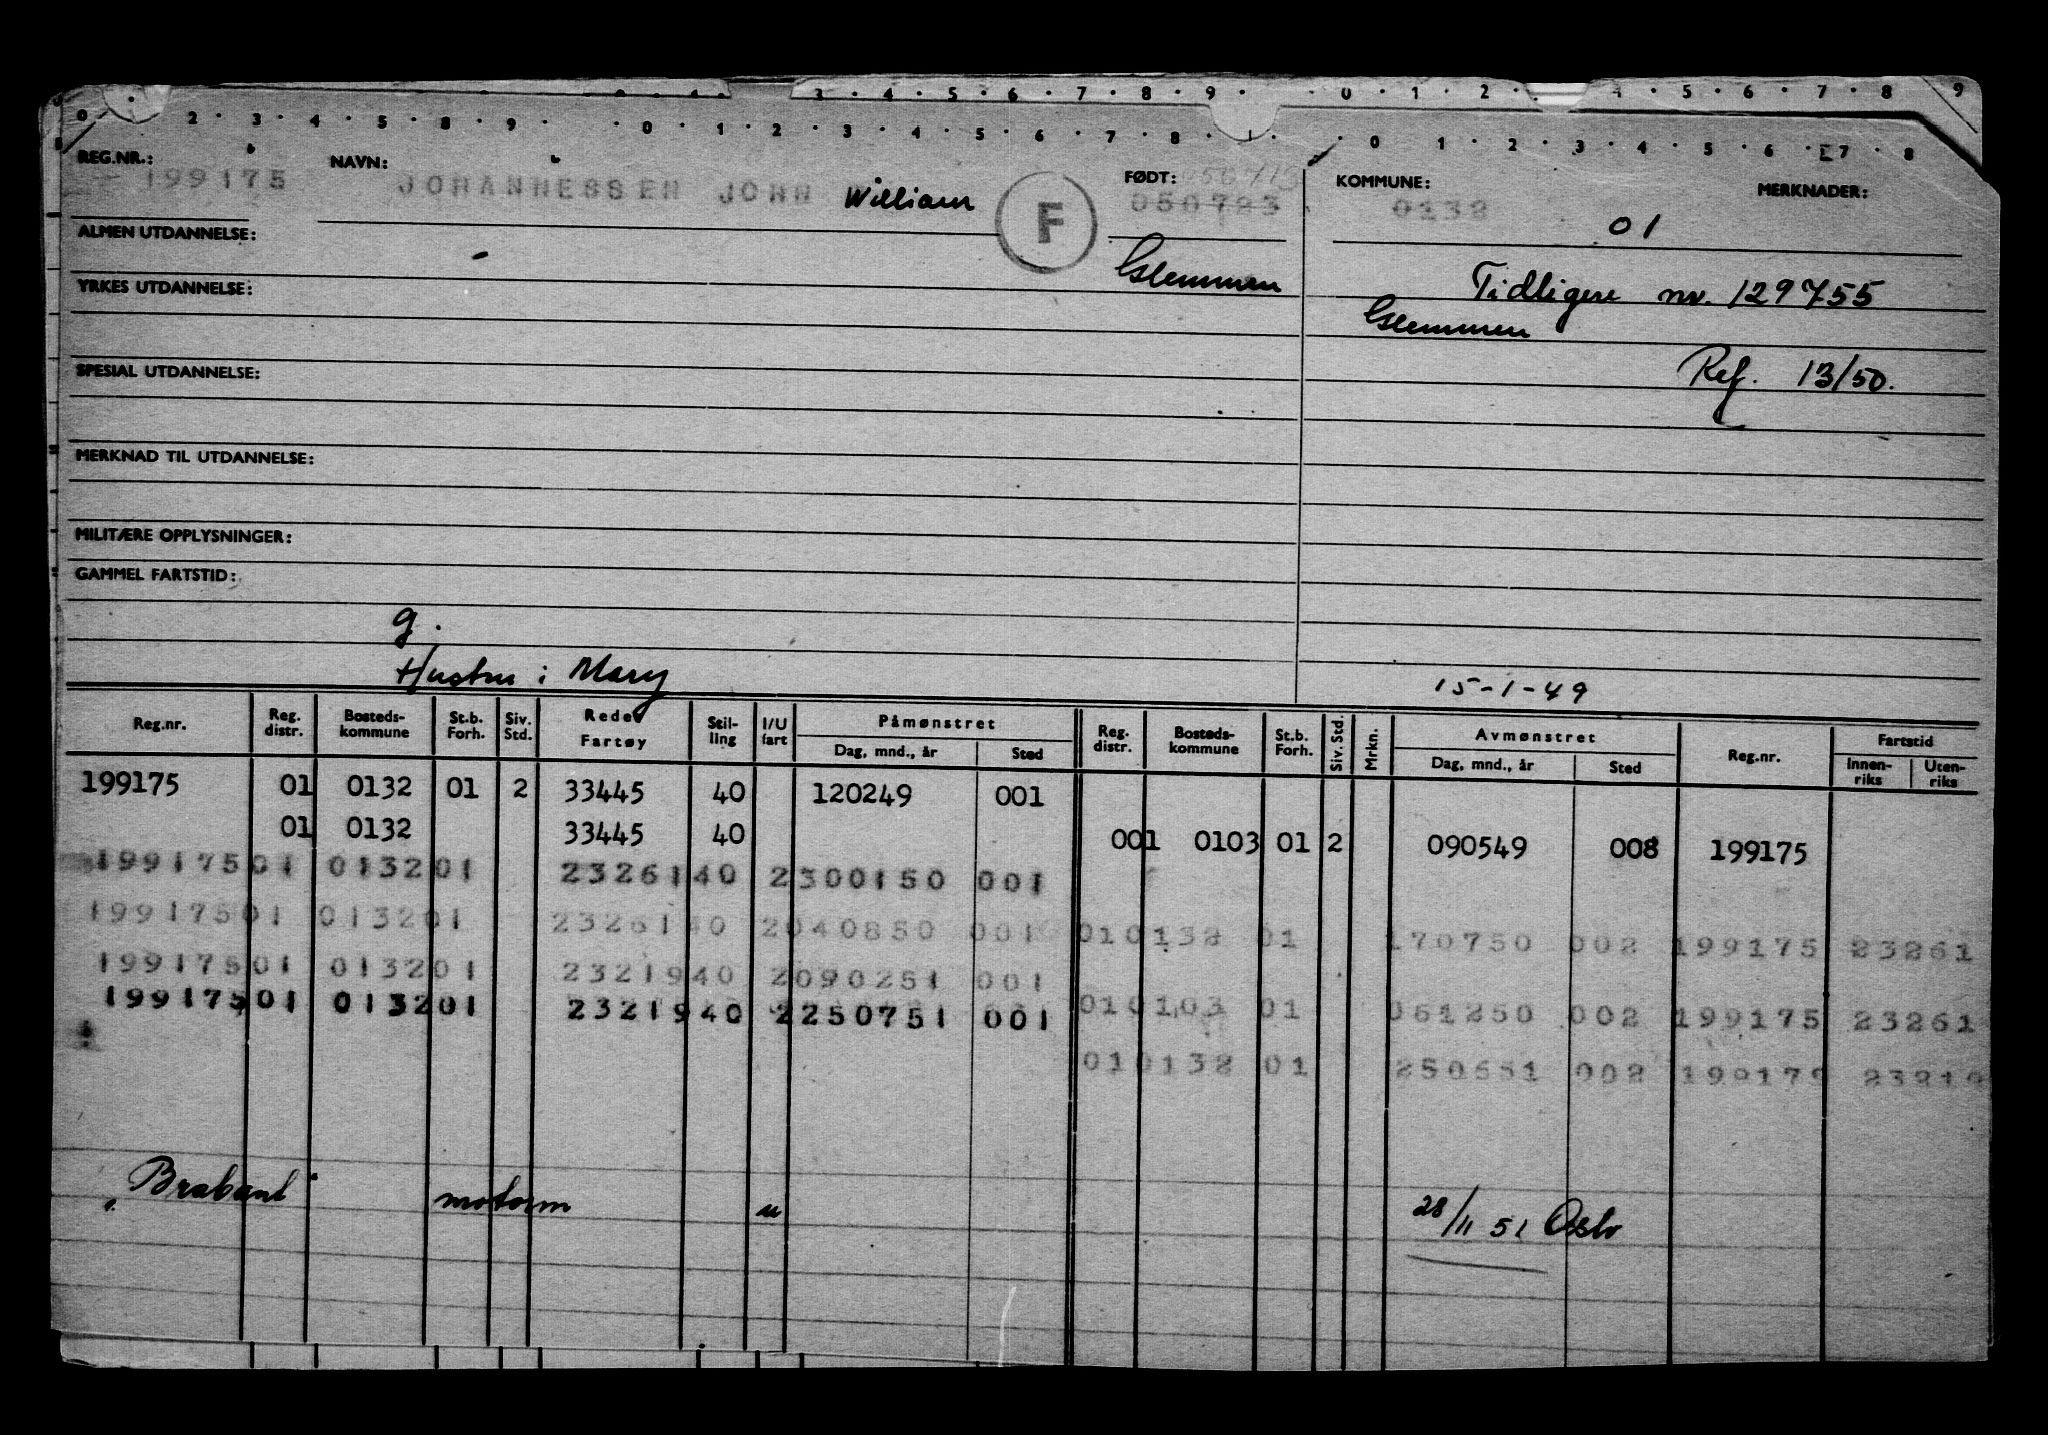 3 · 4 · 5 · 6 · 7 · 8 · 9 · · 0 · 1 · 2 · 4 · 5 · 6 · 7 · 8 · 9
0 2 · 3 · 4 · 5 · 8 · 9 · · 0 · 1 · 2 · 3 · 4 · 5 · 6 · 7 · 8 · · 0 · 1 · 2 · 3 · 4 · 5 · 6 · 7 · 8
REG.NR.: NAVN: FØDT: KOMMUNE: MERKNADER:
199175 JOHANNESSEN JOHN William F 050723 0132
01
ALMEN UTDANNELSE: -
Glemmen Tidligere nr. 129755
YRKES UTDANNELSE:
Glemmen
Ref. 13/50.
SPESIAL UTDANNELSE:
MERKNAD TIL UTDANNELSE:
MILITÆRE OPPLYSNINGER:
GAMMEL FARTSTID:
g.
Hustru : Mary 15-1-49
Reg.nr. Reg. distr. Bosteds-kommune St.b. Forh. Siv. Std. Reder Fartøy Stil-ling I/U fart Påmønstret Dag, mnd., år Sted Reg. distr. Bosteds-kommune St.b. Forh. Siv. Std. Mrkn. Avmønstret Dag, mnd., år Sted Reg.nr. Fartstid Innen-riks Uten-riks
199175 01 0132 01 2 33445 40 120249 001
01 0132 33445 40 001 0103 01 2 090549 008 199175
199175 01 0132 01 23261 40 2 300150 001
199175 01 0132 01 23261 40 2 040850 001 01 0132 01 170750 002 199175 23261
199175 01 0132 01 23219 40 2 090251 001
199175 01 0132 01 23219 40 2 250751 001 01 0103 01 061250 002 199175 23261
01 0132 01 250651 002 199175 23219
"Brabant" motorm u 28/11 51 Oslo